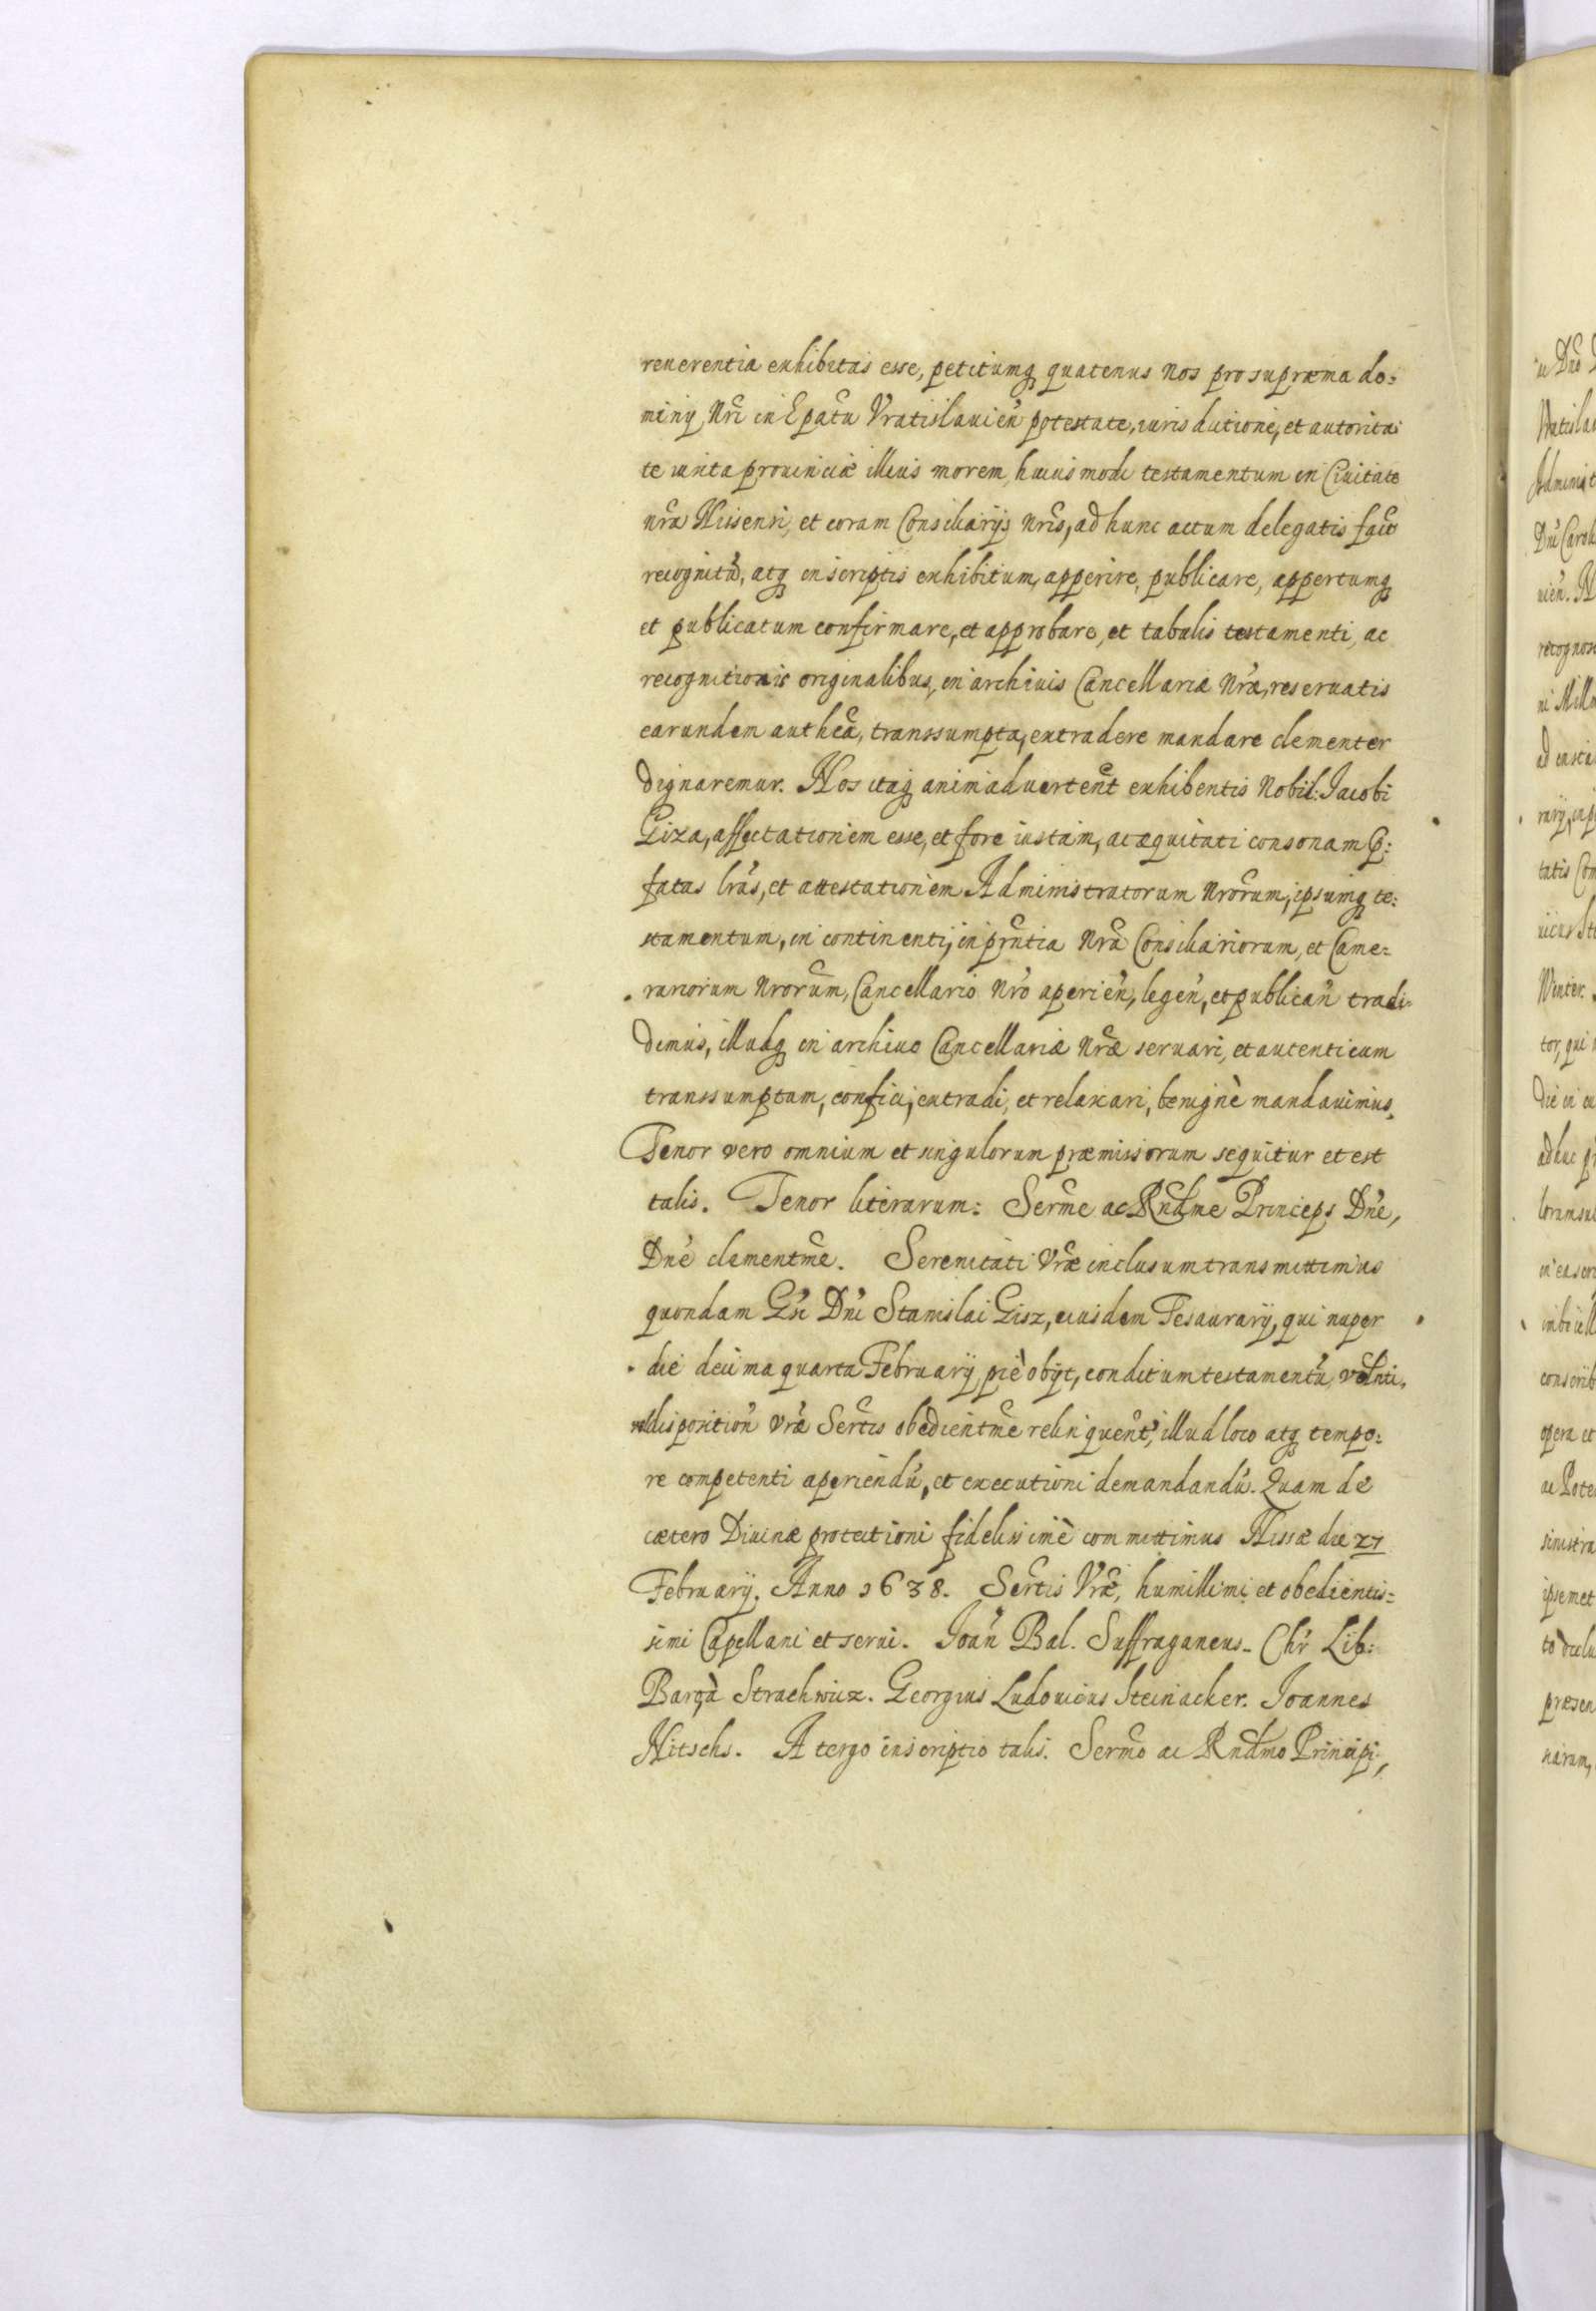 reuerentia exhibitas esse, petitumq́ quatenus Nos pro supræma do:
minij Nri in Epatu Vratislauien potestate, iurisdictione, et autorita:
te iuxta prouinciæ illius morem, huiusmodi testamentum in Ciuitate
nra Nissensi, et coram Consiliarijs nris, ad hunc actum delegatis factō
recognitū, atq in scriptis exhibitum, apperire, publicare, appertumq
et publicatum confirmare, et approbare, et tabulis testamenti, ac
recognitionis originalibus, in archiuis Cancellariæ Nræ, reseruatis
earundem authēa, transsumpta, extradere mandare clementer
dignaremur. Nos itaq animaduertent exhibentis Nobil: Jacobi
Giza, affectationem esse, et fore iustam, ac æquitati consonam p:
fatas lras, et attestationem Administratorum Nrorum, ipsumq te:
stamentum, in continenti, in prntia Nra Consiliariorum, et Came:
rariorum Nrorum, Cancellario Nro aperien, legen, et publican tradi:
dimus, illudq in archiuo Cancellariæ Nræ seruari, et autenticum
transsumptum, confici, extradi, et relaxari, benignè mandauimus.
Tenor vero omnium et singulorum præmissorum sequitur et est
talis. Tenor literarum: Serme ac Rndme Princeps Dne,
Dne clementme. Serenitati Vræ inclusum transmittimus
quondam Gsi Dni Stanislai Gisz, eiusdem Tesaurarij, qui nuper
die decima quarta Februarij piè obijt, conditum testamentū, volnti,
disposition vræ Sertis obedientme relinquent, illud loco atq tempo:
re competenti aperiendū, et executioni demandandū. Quam de
cætero Diuinæ protectioni fidelissimè committimus Nissæ die 27
Februarij. Anno 1638. Sertis Vræ, humillimi et obedientis:
simi Capellani et serui. Joan Bal. Suffraganeus. Chr Lib:
Baro à Strachwicz. Georgius Ludouicus Steinacker. Joannes
Nitschs. A tergo inscriptio talis. Sermo ac Rndmo Principi,